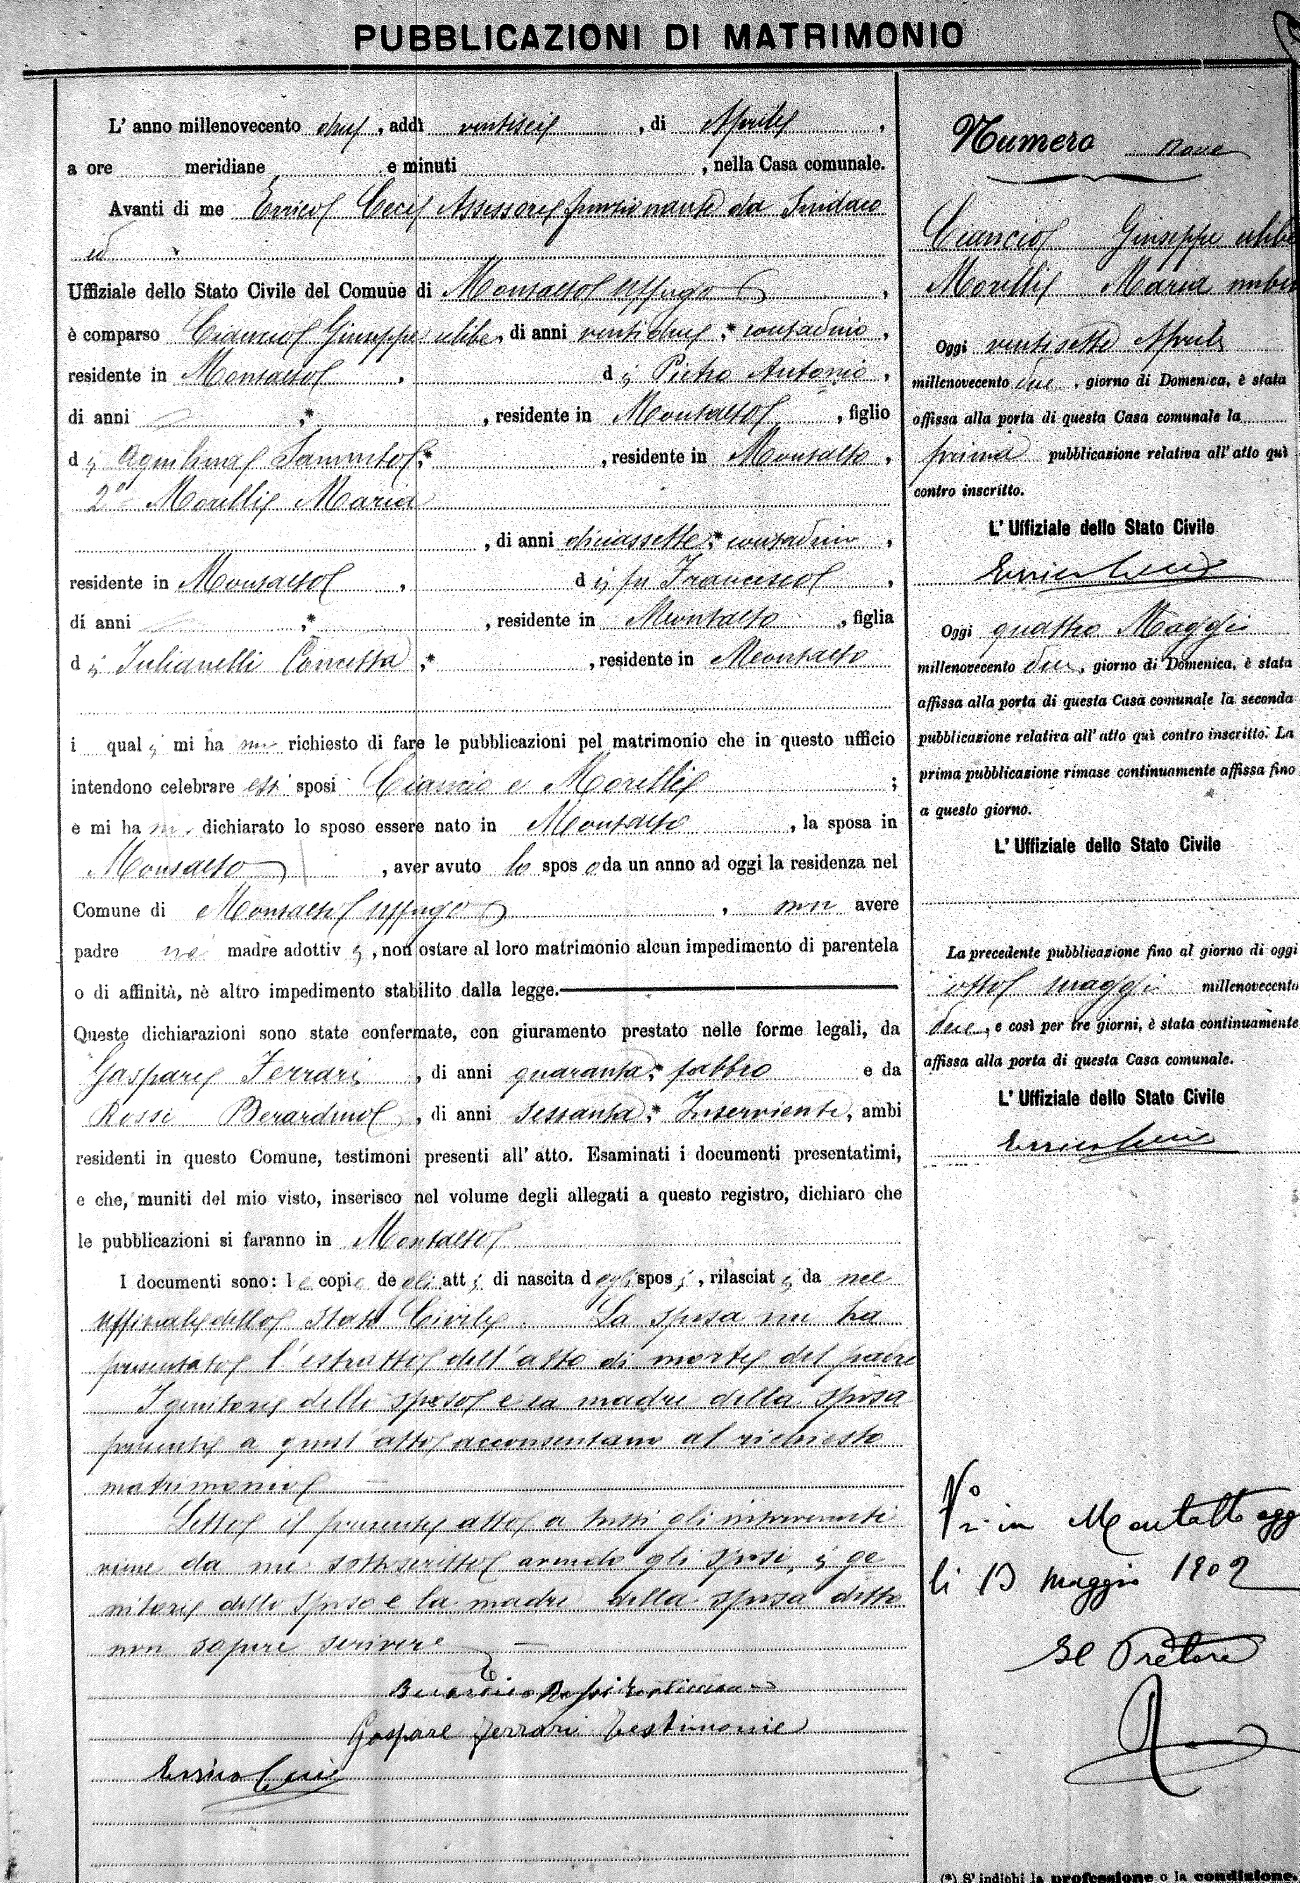 PUBBLICAZIONI DI MATRIMONIO
L' anno millenovecento due, addì ventisei, di Aprile,
a ore meridiane e minuti, nella Casa comunale.
Avanti di me Errico Ceci Assessore funzionante da Sindaco
ed
Uffiziale dello Stato Civile del Comune di Montalto Uffugo,
è comparso Ciancio Giuseppe celibe, di anni ventidue,* contadino,
residente in Montalto, di Pietro Antonio,
di anni ,* , residente in Montalto, figlio
di Aquilina ,* , residente in Montalto,
2° Morelli Maria
, di anni diciassette,* contadina,
residente in Montalto, di fu Francesco,
di anni ,* , residente in Montalto, figlia
di Iulianelli Concetta,* , residente in Montalto
i quali mi hanno richiesto di fare le pubblicazioni pel matrimonio che in questo ufficio
intendono celebrare essi sposi Ciancio e Morelli ;
e mi hanno dichiarato lo sposo essere nato in Montalto, la sposa in
Montalto, aver avuto lo sposo da un anno ad oggi la residenza nel
Comune di Montalto Uffugo, non avere
padre nè madre adottivi, non ostare al loro matrimonio alcun impedimento di parentela
o di affinità, nè altro impedimento stabilito dalla legge.
Queste dichiarazioni sono state confermate, con giuramento prestato nelle forme legali, da
Gaspare Ferrari, di anni quaranta,* fabbro e da
Rossi Berardino, di anni sessanta,* Inserviente, ambi
residenti in questo Comune, testimoni presenti all' atto. Esaminati i documenti presentatimi,
e che, muniti del mio visto, inserisco nel volume degli allegati a questo registro, dichiaro che
le pubblicazioni si faranno in Montalto
I documenti sono: le copie degli atti di nascita degli sposi, rilasciati da
Uffiziale dello Stato Civile. La sposa mi ha
presentato l'estratto dell'atto di morte del padre
I genitori dello sposo e la madre della sposa
presenti a quest'atto acconsentano al richiesto
matrimonio
Letto il presente atto a tutti gli intervenuti
viene da me sottoscritto avendo gli sposi, i ge
nitori dello sposo e la madre della sposa detto
non sapere scrivere
Berardino Rossi Testimone
Gaspare Ferrari Testimone
Errico Ceci
Numero nove
Ciancio Giuseppe celibe
Morelli Maria nubile
Oggi ventisette Aprile
millenovecento due, giorno di Domenica, è stata
affissa alla porta di questa Casa comunale la
prima pubblicazione relativa all' atto quì
contro inscritto.
L' Uffiziale dello Stato Civile
Errico Ceci
Oggi quattro Maggio
millenovecento due, giorno di Domenica, è stata
affissa alla porta di questa Casa comunale la seconda
pubblicazione relativa all' atto quì contro inscritto. La
prima pubblicazione rimase continuamente affissa fino
a questo giorno.
L' Uffiziale dello Stato Civile
La precedente pubblicazione fino al giorno di oggi
otto maggio millenovecento
due, e così per tre giorni, è stata continuamente
affissa alla porta di questa Casa comunale.
L' Uffiziale dello Stato Civile
Errico Ceci
in Montalto oggi
li 13 maggio 1902
Il Pretore
(*) S' indichi la professione o la condizione.